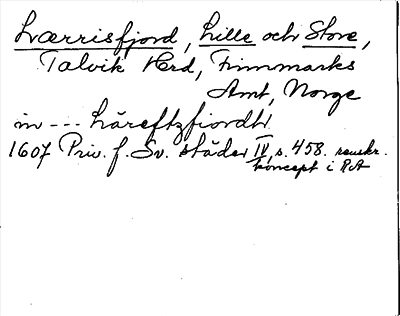 Lærrisfjord, Lille och Store,
Talvik Hrd, Finmarks
Amt, Norge
in --- Läreftzfiordh
1607 Priv. f. Sv. städer IV, s. 458. renskr.
koncept i RA